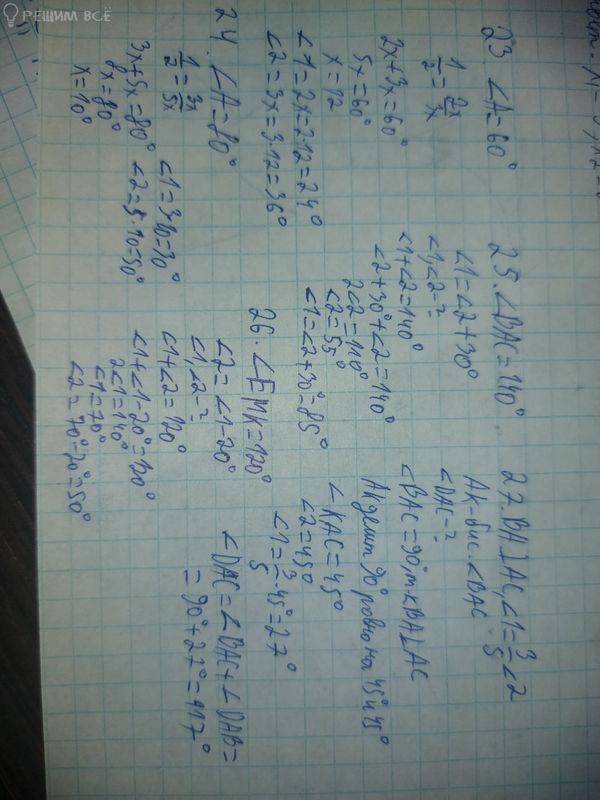 РЕШИМ ВСЁ
23 ∠A=60°
1/2 = 2x/3x
2x+3x=60°
5x=60°
x=12
∠1=2x=2·12=24°
∠2=3x=3·12=36°
24. ∠A=80°
1/2 = 3x/5x
3x+5x=80°
8x=80°
x=10°
∠1=3·10=30°
∠2=5·10=50°
25. ∠BAC=140°
∠1=∠2+30°
∠1,∠2-?
∠1+∠2=140°
∠2+30°+∠2=140°
2∠2=110°
∠2=55°
∠1=∠2+30°=85°
26. ∠FMK=120°
∠2=∠1-20°
∠1,∠2-?
∠1+∠2=120°
∠1+∠1-20°=120°
2∠1=140°
∠1=70°
∠2=70°-20°=50°
27. BA⊥AC, ∠1=3/5∠2
AK-бис. ∠BAC
∠DAC-?
∠BAC=90°, т.к BA⊥AC
AK делит 90° ровно на 45 и 45°
∠KAC=45°
∠2=45°
∠1=3/5·45°=27°
∠DAC=∠BAC+∠DAB=
=90°+27°=117°